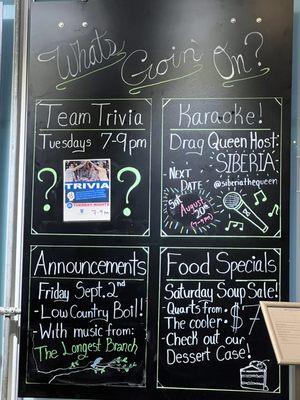 What's Goin' On?
Team Trivia
Tuesdays 7-9pm
TRIVIA
TUESDAY NIGHTS
7-9 PM
? ?
Karaoke!
Drag Queen Host:
SIBERIA
@siberiathequeen
Next
Date
Sat.
August
20th
(7-11pm)
Announcements
Friday Sept. 2nd
-Low Country Boil!
-With music from:
The Longest Branch
Food Specials
Saturday Soup Sale!
-Quarts from
The cooler $7
-Check out our
Dessert Case!